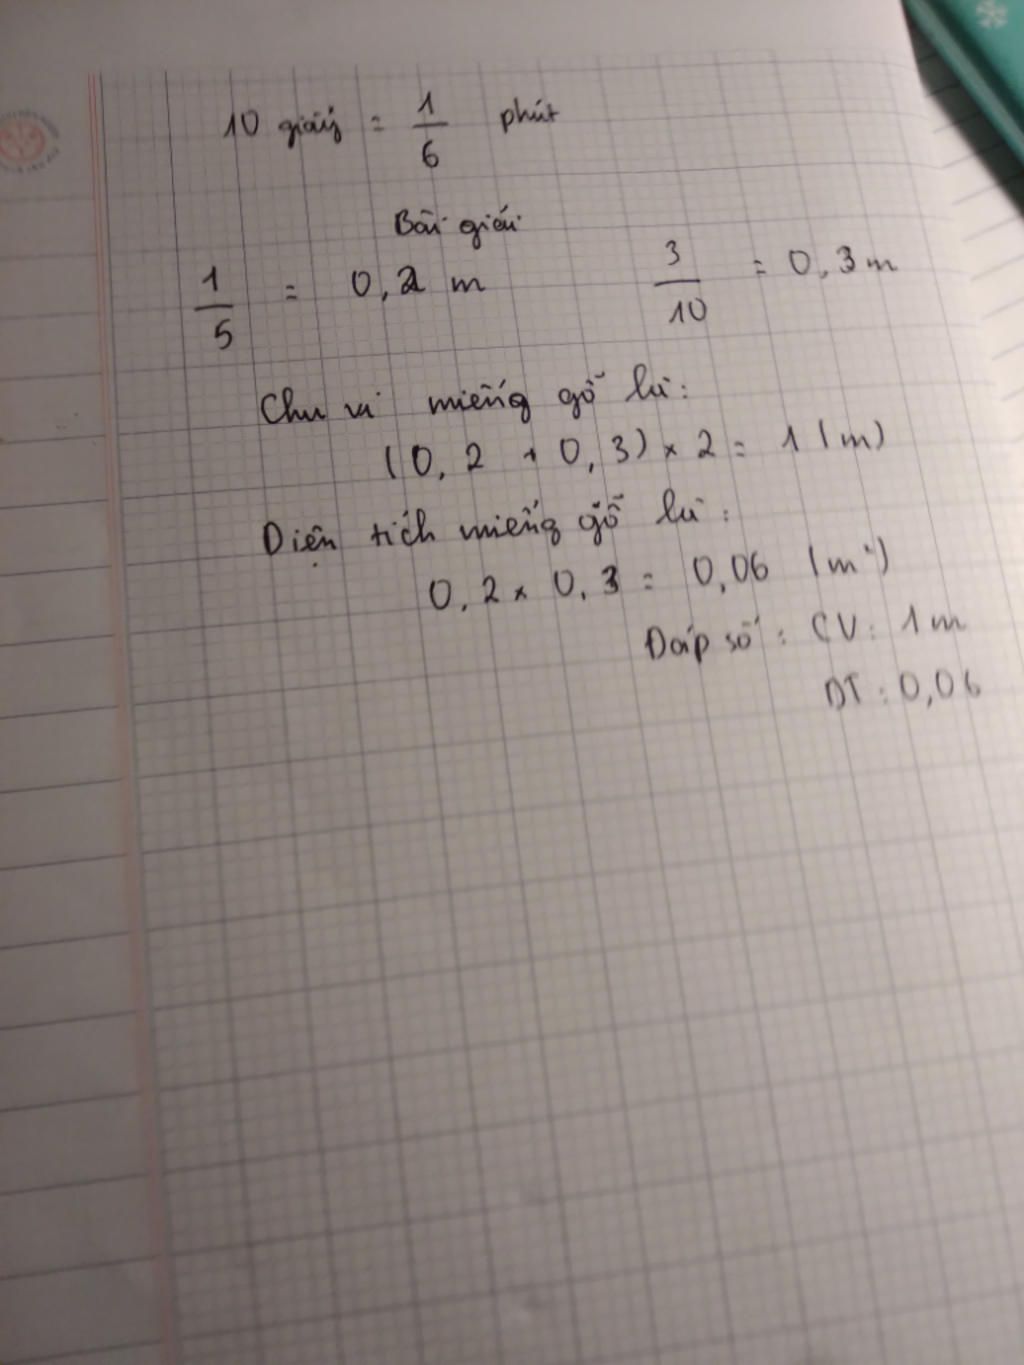 10 giây = 1/6 phút
Bài giải
1/5 = 0,2 m 3/10 = 0,3 m
Chu vi miếng gỗ là:
(0,2 + 0,3) x 2 = 1 (m)
Diện tích miếng gỗ là:
0,2 x 0,3 = 0,06 (m²)
Đáp số: CV: 1 m
DT: 0,06